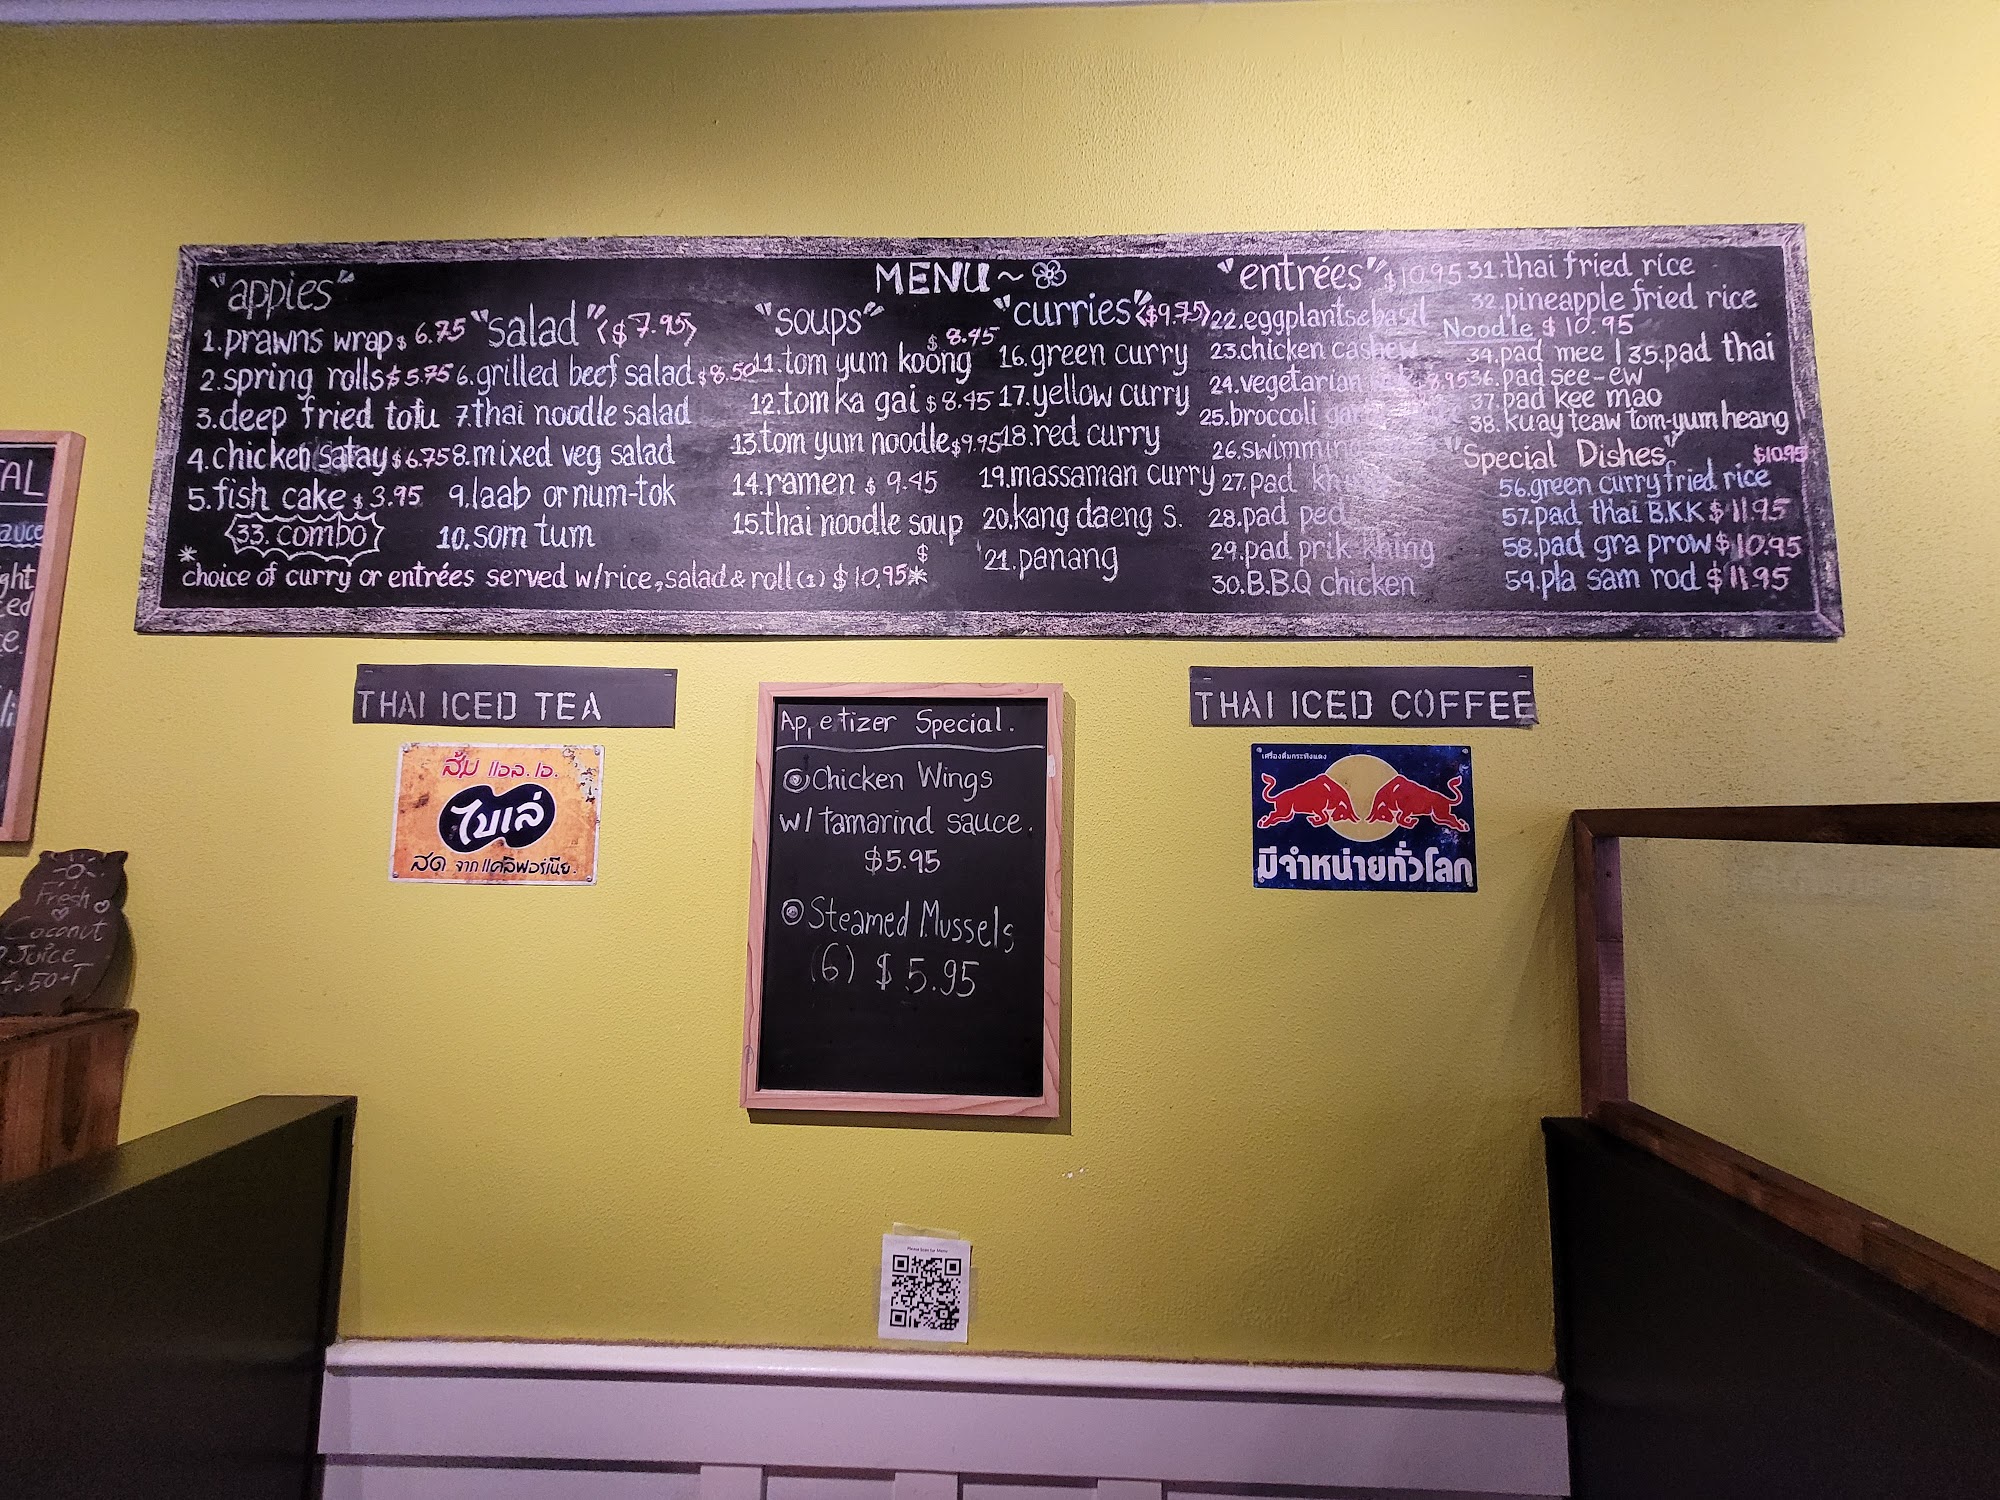 MENU~
"appies"
1.prawns wrap $ 6.75
2.spring rolls $5.75
3.deep fried tofu
4.chicken satay $6.75
5.fish cake $3.95
33. combo
"salad" ($7.95)
6.grilled beef salad $8.50
7.thai noodle salad
8.mixed veg salad
9.laab or num-tok
10.som tum
*choice of curry or entrées served w/rice, salad & roll(1) $10.95*
"soups"
$8.45
11.tom yum koong
12.tom ka gai $8.45
13.tom yum noodle $9.95
14.ramen $ 9.45
15.thai noodle soup
$
"curries" ($9.75)
16.green curry
17.yellow curry
18.red curry
19.massaman curry
20.kang daeng s.
21.panang
"entrées" $10.95
22.eggplants & basil
23.chicken cashew
24.vegetarian
25.broccoli
26.swimming
27.pad
28.pad ped
29.pad prik khing
30.B.B.Q chicken
31.thai fried rice
32.pineapple fried rice
Noodle $10.95
34.pad mee | 35.pad thai
36.pad see-ew
37.pad kee mao
38.kuay teaw tom-yum heang
"Special Dishes" $10.95
56.green curry fried rice
57.pad thai B.K.K $11.95
58.pad gra prow $10.95
59.pla sam rod $11.95
THAI ICED TEA
ส้ม แอล.เอ.
ไบเล่
สด จากแคลิฟอร์เนีย.
Appetizer Special.
Chicken Wings
w/ tamarind sauce.
$5.95
Steamed Mussels
(6) $5.95
THAI ICED COFFEE
เครื่องดื่มกระทิงแดง
มีจำหน่ายทั่วโลก
Fresh
Coconut
Juice
Please Scan for Menu